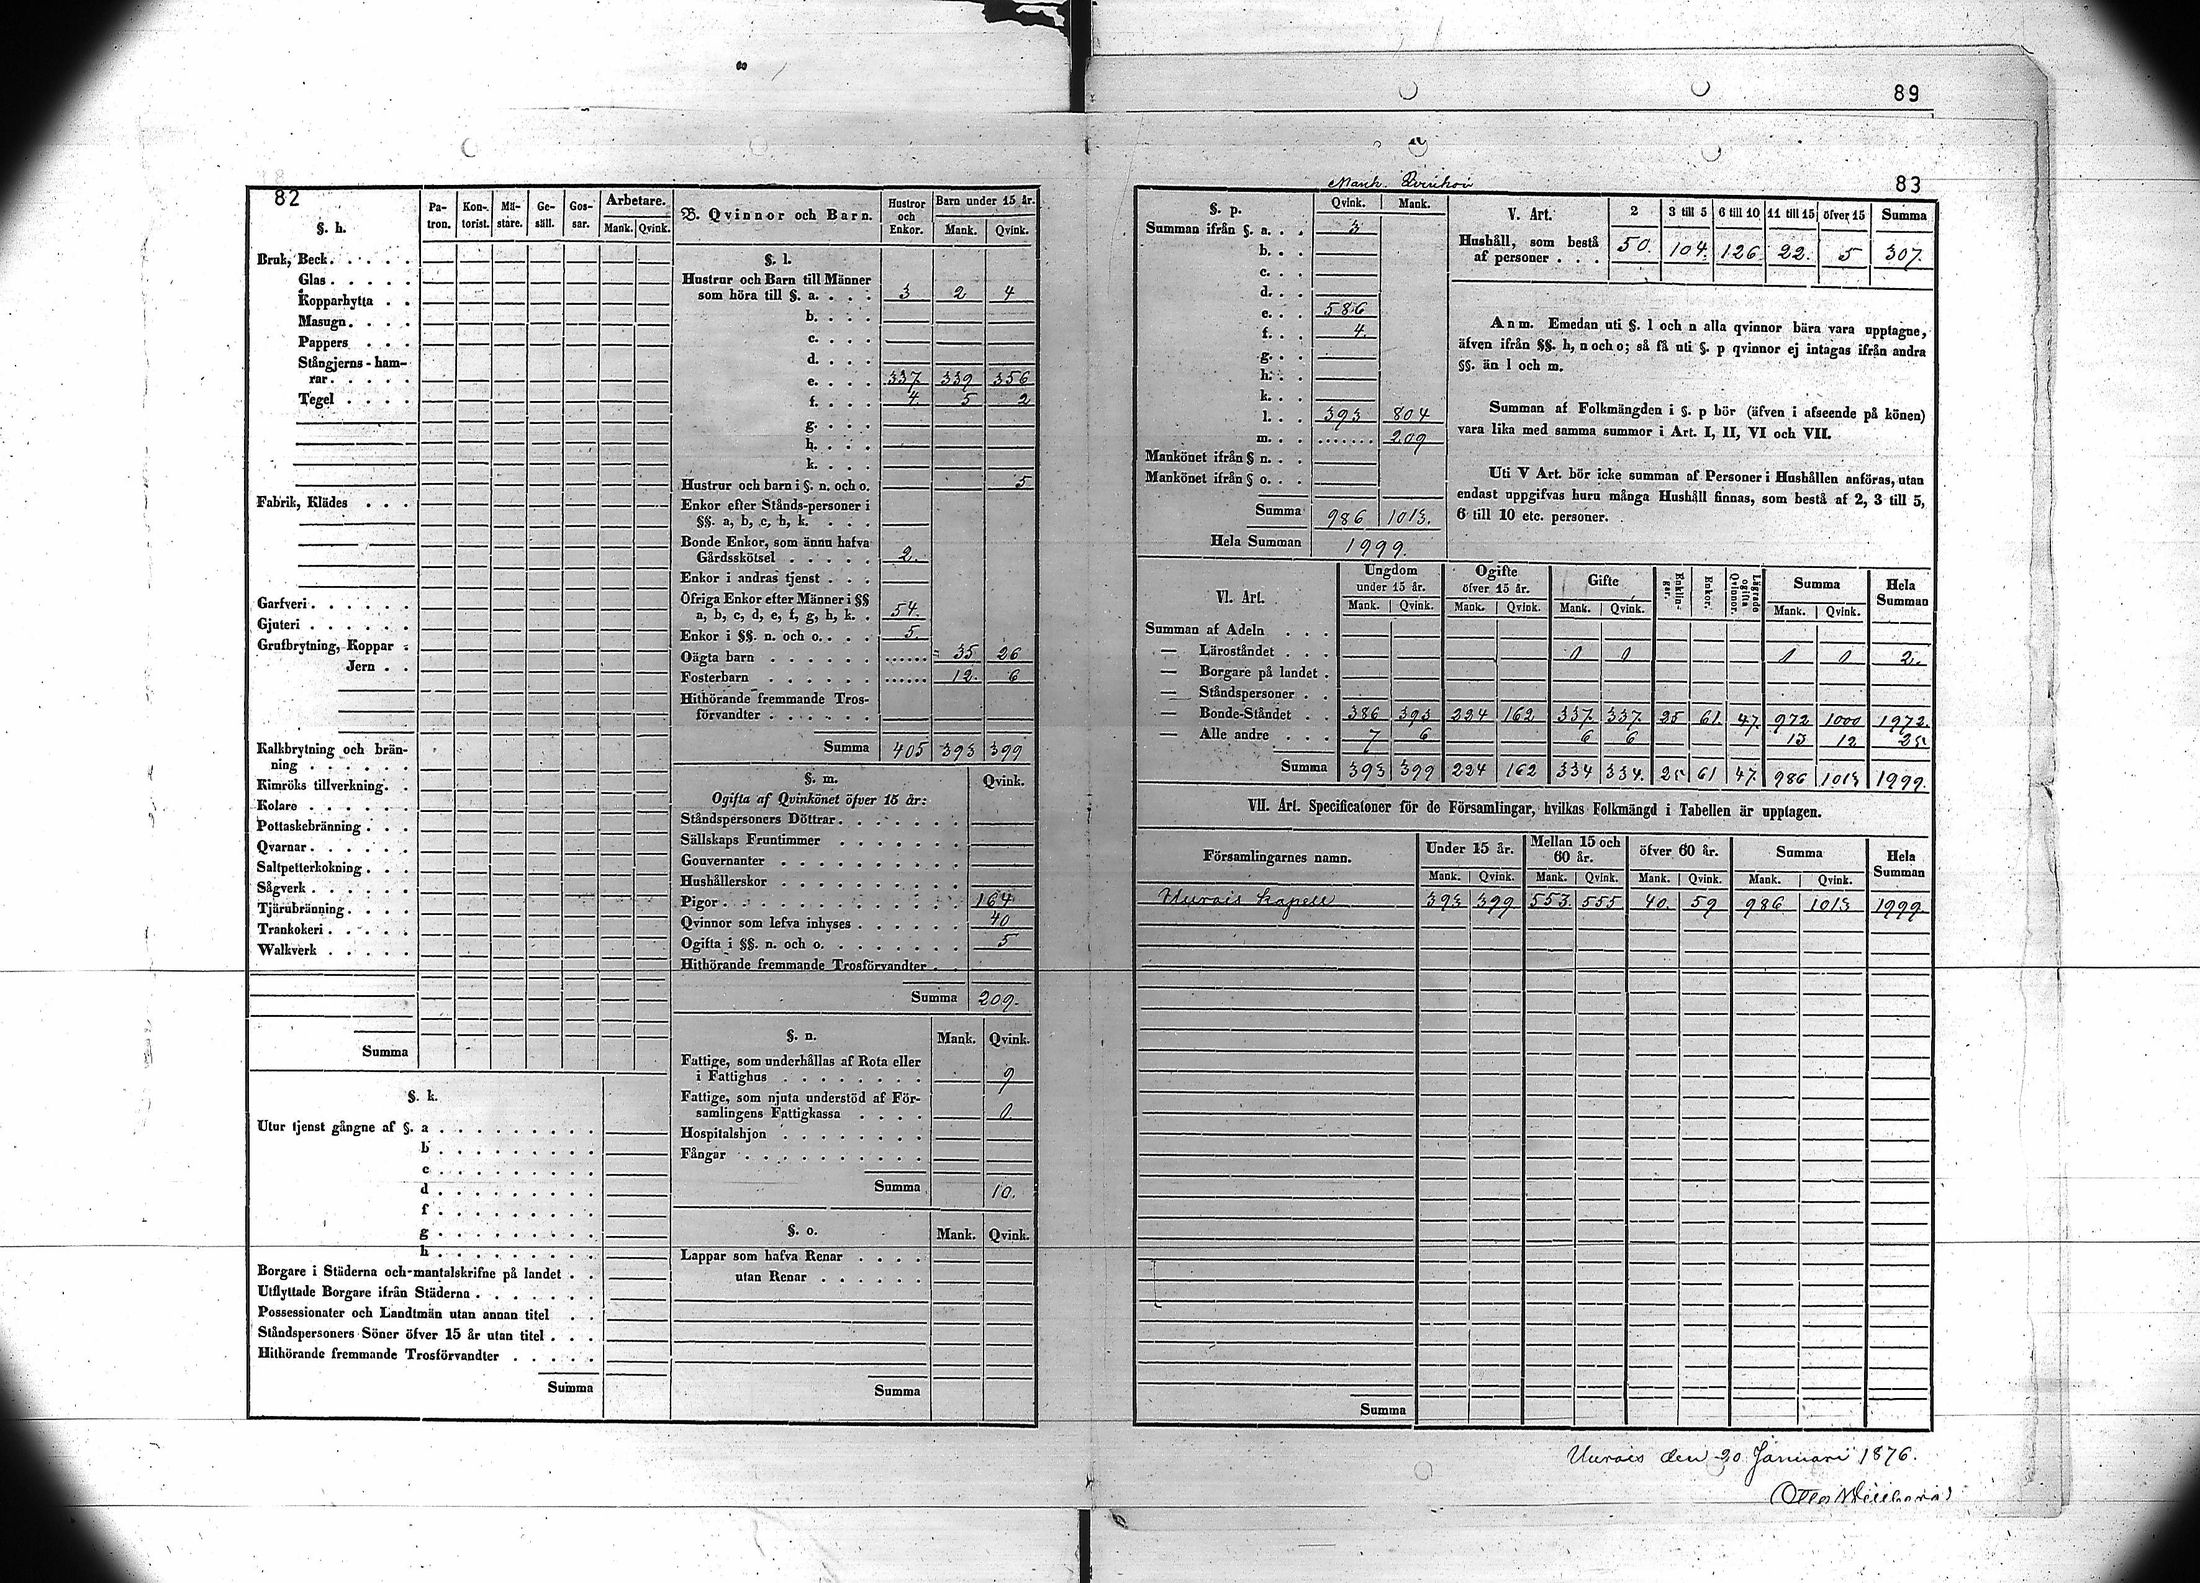 89
82
§. h.
Pa-
tron.
Kon-
torist.
Mä-
stare.
Ge-
säll.
Gos-
sar.
Arbetare.
Mank. Qvink.
Bruk, Beck. . . . .
Glas . . . . .
Kopparhytta . .
Masugn. . . .
Pappers . . .
Stångjerns-ham-
rar. . . . .
Tegel . . . .
Fabrik, Klädes . . .
Garfveri. . . . . .
Gjuteri . . . . . .
Grufbrytning, Koppar .
Jern . .
Kalkbrytning och brän-
ning . . . . . .
Kimröks tillverkning. .
Kolare . . . . . .
Pottaskebränning . . .
Qvarnar. . . . . .
Saltpetterkokning. . .
Sågverk . . . . . .
Tjärubränning. . . .
Trankokeri . . . . .
Walkverk . . . . .
Summa
§. k.
Utur tjenst gångne af §. a . . . . . . . . .
b . . . . . . . . .
c . . . . . . . . .
d . . . . . . . . .
f . . . . . . . . .
g . . . . . . . . .
h . . . . . . . . .
Borgare i Städerna och mantalskrifne på landet . .
Utflyttade Borgare ifrån Städerna . . . . . . .
Possessionater och Landtmän utan annan titel . .
Ståndspersoners Söner öfver 15 år utan titel . . .
Hithörande fremmande Trosförvandter . . . . .
Summa
B. Qvinnor och Barn.
Hustror
och
Enkor.
Barn under 15 år.
Mank. Qvink.
§. l.
Hustrur och Barn till Männer
som höra till §. a. . . . 3 2 4
b. . . .
c. . . .
d. . . .
e. . . . 337. 339 356
f. . . . 4. 5 2
g. . . .
h. . . .
k. . . .
Hustrur och barn i §. n. och o. 5
Enkor efter Stånds-personer i
§§. a, b, c, h, k. . . .
Bonde Enkor, som ännu hafva
Gårdsskötsel . . . . . 2.
Enkor i andras tjenst . . .
Öfriga Enkor efter Männer i §§
a, b, c, d, e, f, g, h, k. . 54.
Enkor i §§. n. och o. . . . 5.
Oägta barn . . . . . . ...... 35 26
Fosterbarn . . . . . . ...... 12. 6
Hithörande fremmande Tros-
förvandter . . . . . .
Summa 405 393 399
§. m.
Qvink.
Ogifta af Qvinkönet öfver 15 år:
Ståndspersoners Döttrar. . . . . . .
Sällskaps Fruntimmer . . . . . . .
Gouvernanter . . . . . . . . . .
Hushållerskor . . . . . . . . . .
Pigor. . . . . . . . . . . . . 164
Qvinnor som lefva inhyses . . . . . . 40
Ogifta i §§. n. och o. . . . . . . . 5
Hithörande fremmande Trosförvandter . .
Summa 209.
§. n. Mank. Qvink.
Fattige, som underhållas af Rota eller
i Fattighus . . . . . . . . 9
Fattige, som njuta understöd af För-
samlingens Fattigkassa . . . .
Hospitalshjon . . . . . . . .
Fångar . . . . . . . . . .
Summa 10.
§. o. Mank. Qvink.
Lappar som hafva Renar . . . .
utan Renar . . . . . .
Summa
83
Mank. Qvinkön
§. p. Qvink. Mank.
Summan ifrån §. a. . . 3
b. . .
c. . .
d. . .
e. . . 586
f. . . 4.
g. . .
h. . .
k. . .
l. . . 393 804
m. . . ....... 209
Mankönet ifrån § n. . .
Mankönet ifrån § o. . .
Summa 986 1013.
Hela Summan 1999.
V. Art. 2 3 till 5 6 till 10 11 till 15 öfver 15 Summa
Hushåll, som bestå
af personer . . . 50. 104. 126 22. 5 307.
Anm. Emedan uti §. l och n alla qvinnor bära vara upptagne,
äfven ifrån §§. h, n och o; så få uti §. p qvinnor ej intagas ifrån andra
§§. än l och m.
Summan af Folkmängden i §. p bör (äfven i afseende på könen)
vara lika med samma summor i Art. I, II, VI och VII.
Uti V Art. bör icke summan af Personer i Hushållen anföras, utan
endast uppgifvas huru många Hushåll finnas, som bestå af 2, 3 till 5,
6 till 10 etc. personer.
VI. Art.
Ungdom
under 15 år.
Mank. Qvink.
Ogifte
öfver 15 år.
Mank. Qvink.
Gifte
Mank. Qvink.
Enklin-
gar.
Enkor.
Lägrade
ogifta
Qvinnor.
Summa
Mank. Qvink.
Hela
Summan
Summan af Adeln . . .
— Läroståndet . . . 1 1 1 1 2.
— Borgare på landet .
— Ståndspersoner . .
— Bonde-Ståndet . . 386 393 224 162 337. 337. 25 61. 47. 972 1000 1972.
— Alle andre . . . 7 6 6 6 13 12 25
Summa 393 399 224 162 334 334. 25 61 47. 986 1013 1999.
VII. Art. Specificatoner för de Församlingar, hvilkas Folkmängd i Tabellen är upptagen.
Församlingarnes namn.
Under 15 år.
Mank. Qvink.
Mellan 15 och
60 år.
Mank. Qvink.
öfver 60 år.
Mank. Qvink.
Summa
Mank. Qvink.
Hela
Summan
Uurais kapell 393 399 553. 555 40. 59 986 1013 1999.
Summa
Uurais den 20 Januari 1876.